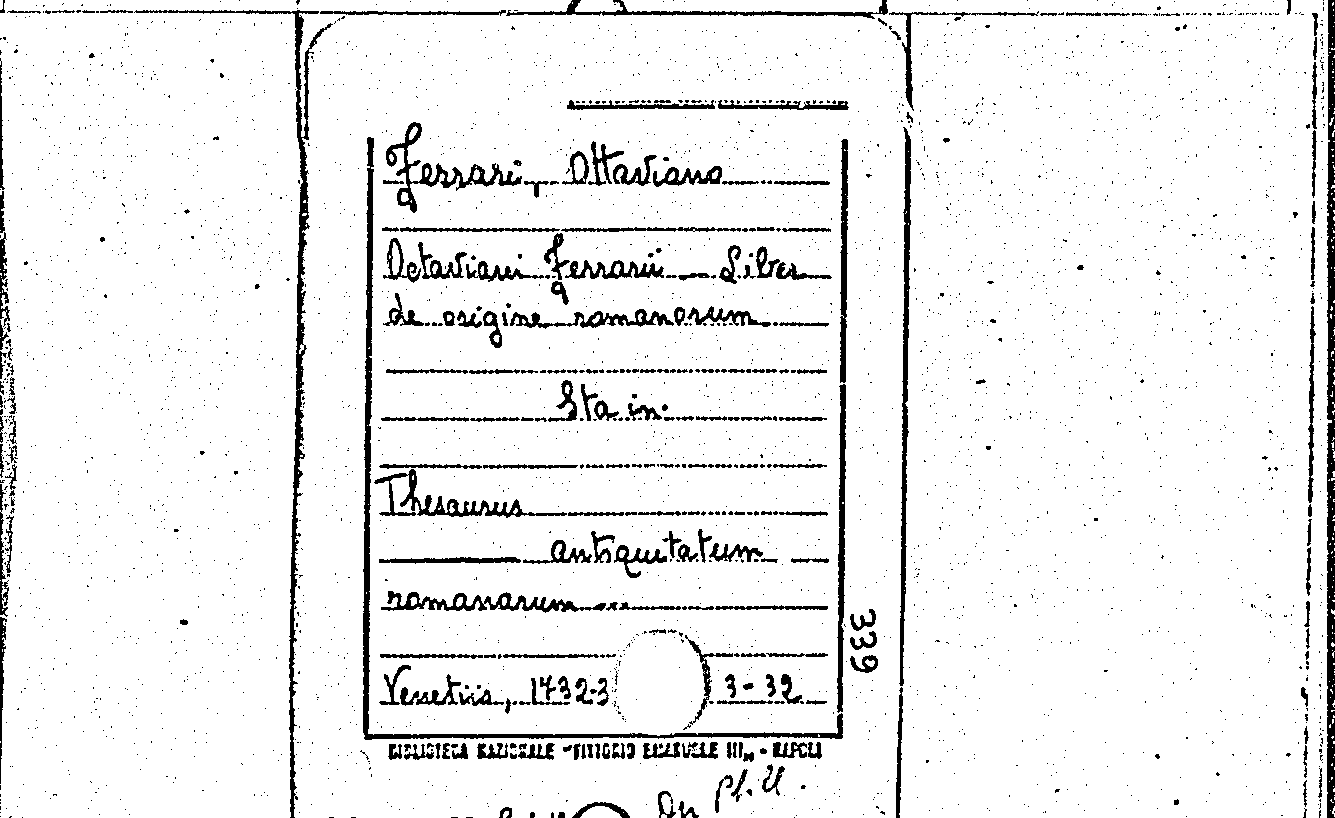 Ferrari, Ottaviano
Octaviani Ferrarii — Liber
de origine romanorum
Sta in.
Thesaurus
antiquitatum
romanarum ...
Venetiis, 1732-3 3-32
339
BIBLIOTECA NAZIONALE "VITTORIO EMANUELE III" - NAPOLI